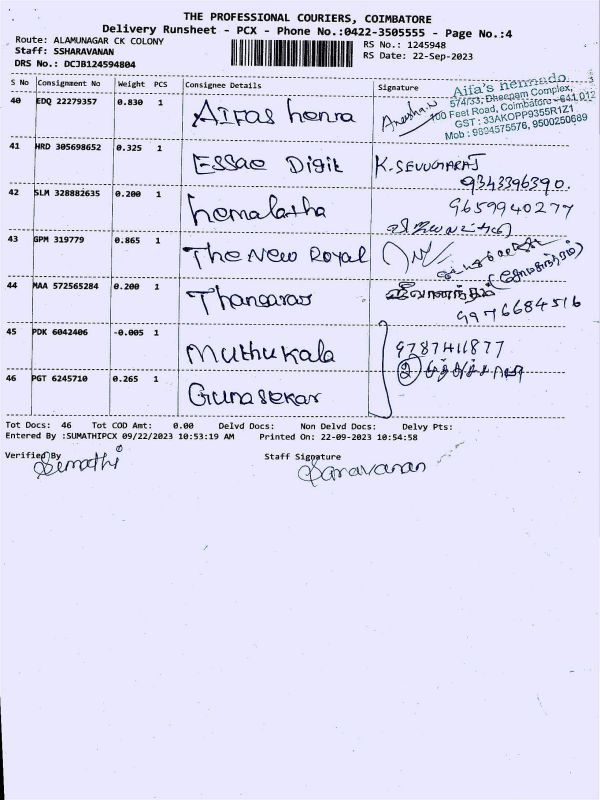 THE PROFESSIONAL COURIERS, COIMBATORE
Delivery Runsheet - PCX - Phone No.:0422-3505555 - Page No.:4
Route: ALAMUNAGAR CK COLONY
RS No.: 1245948
Staff: SSHARAVANAN
RS Date: 22-Sep-2023
DRS No.: DCJB124594804
S No Consignment No Weight PCS Consignee Details Signature
40 EDQ 22279357 0.830 1 Aifas henna
Aifa's hennado
574/33, Dheepam Complex,
100 Feet Road, Coimbatore - 641 012
GST : 33AKOPP9355R1Z1
Mob : 9894575576, 9500250689
41 HRD 305698652 0.325 1 Essae Digit K. SEVUGARAJ
9343396390.
42 SLM 328882635 0.200 1 hemalatha 9659940277
43 GPM 319779 0.865 1 The New Royal
44 MAA 572565284 0.200 1 Thangaraj
9976684516
45 PDK 6042406 -0.005 1 Muthukala 9787411877
2
46 PGT 6245710 0.265 1 Gunasekar
Tot Docs: 46 Tot COD Amt: 0.00 Delvd Docs: Non Delvd Docs: Delvy Pts:
Entered By :SUMATHIPCX 09/22/2023 10:53:19 AM Printed On: 22-09-2023 10:54:58
Verified By Staff Signature
Sumathi Saravanan